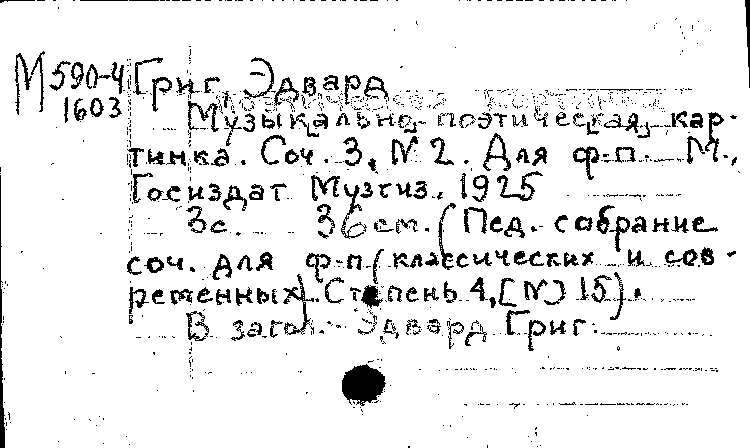 М 590-4 Григ, Эдвард
1603 Музыкально-поэтическая кар-
тинка. Соч. 3, № 2. Для ф-п. М.,
Госиздат Музгиз. 1925
3с. 36см. (Пед. собрание
соч. для ф-п (классических и сов-
ременных). Степень 4, [№] 15).
В загол.: Эдвард Григ.